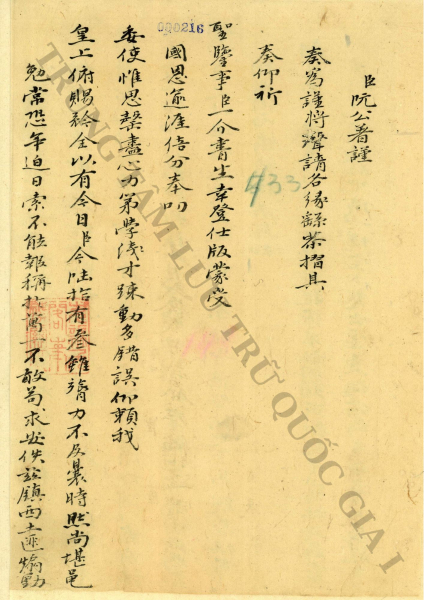 臣阮公著謹
奏爲謹將聲請各緣繇恭摺具
奏仰祈
聖鑒事臣一介書生幸登仕版蒙受
國恩逾涯倍分奉叨
委使惟思罄盡心力第學淺才踈動多錯誤仰賴我
皇上俯賜矜全以有今日臣今陸拾有叁雖膂力不及曩時然尚堪黽
勉常恐年迫日索不能報稱於萬一不敢苟求安佚玆鎭西土匪煽動
000216
433
TRUNG TÂM LƯU TRỮ QUỐC GIA I